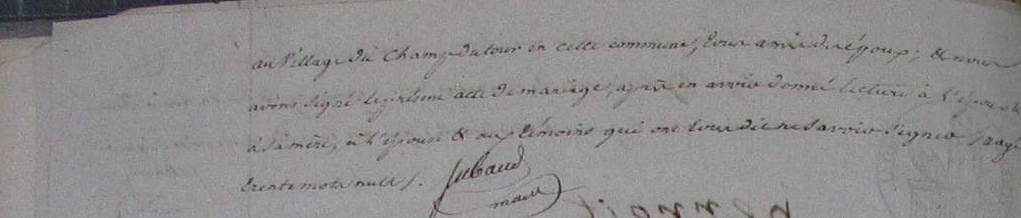 au Village du Champ du tour en cette commune, tous amis de l'époux; et nous
avons signé le présent acte de mariage, après en avoir donné lecture à l'époux
à sa mère, à l'épouse et aux témoins qui ont tous dit ne savoir signer
trente mots nuls.
maire